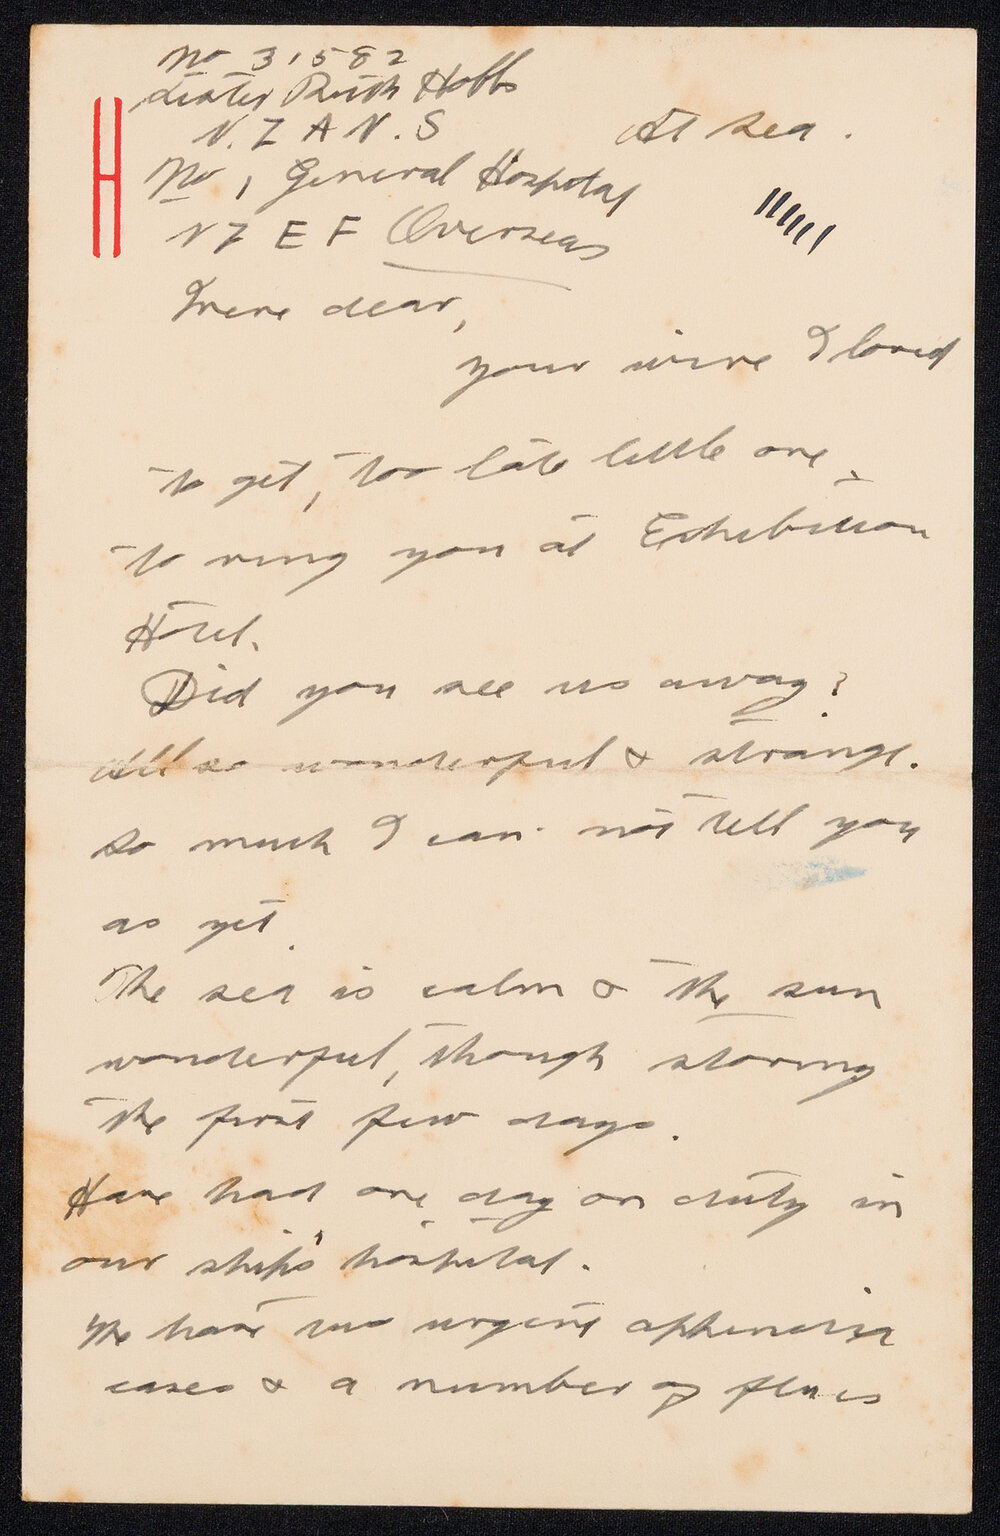 No 31582
Sister Ruth Hobbs
N.Z A N.S
At sea.
No 1 General Hospital
N Z E F Overseas
H
Irene dear,
your wire I loved
to get, too late little one
to ring you at Exhibition
Hotel.
Did you see us away?
All so wonderful & strange.
so much I can not tell you
as yet.
The sea is calm & the sun
wonderful, though stormy
the first few days.
Have had one day on duty in
our ship's hospital.
We have two urgent appendix
cases & a number of flues